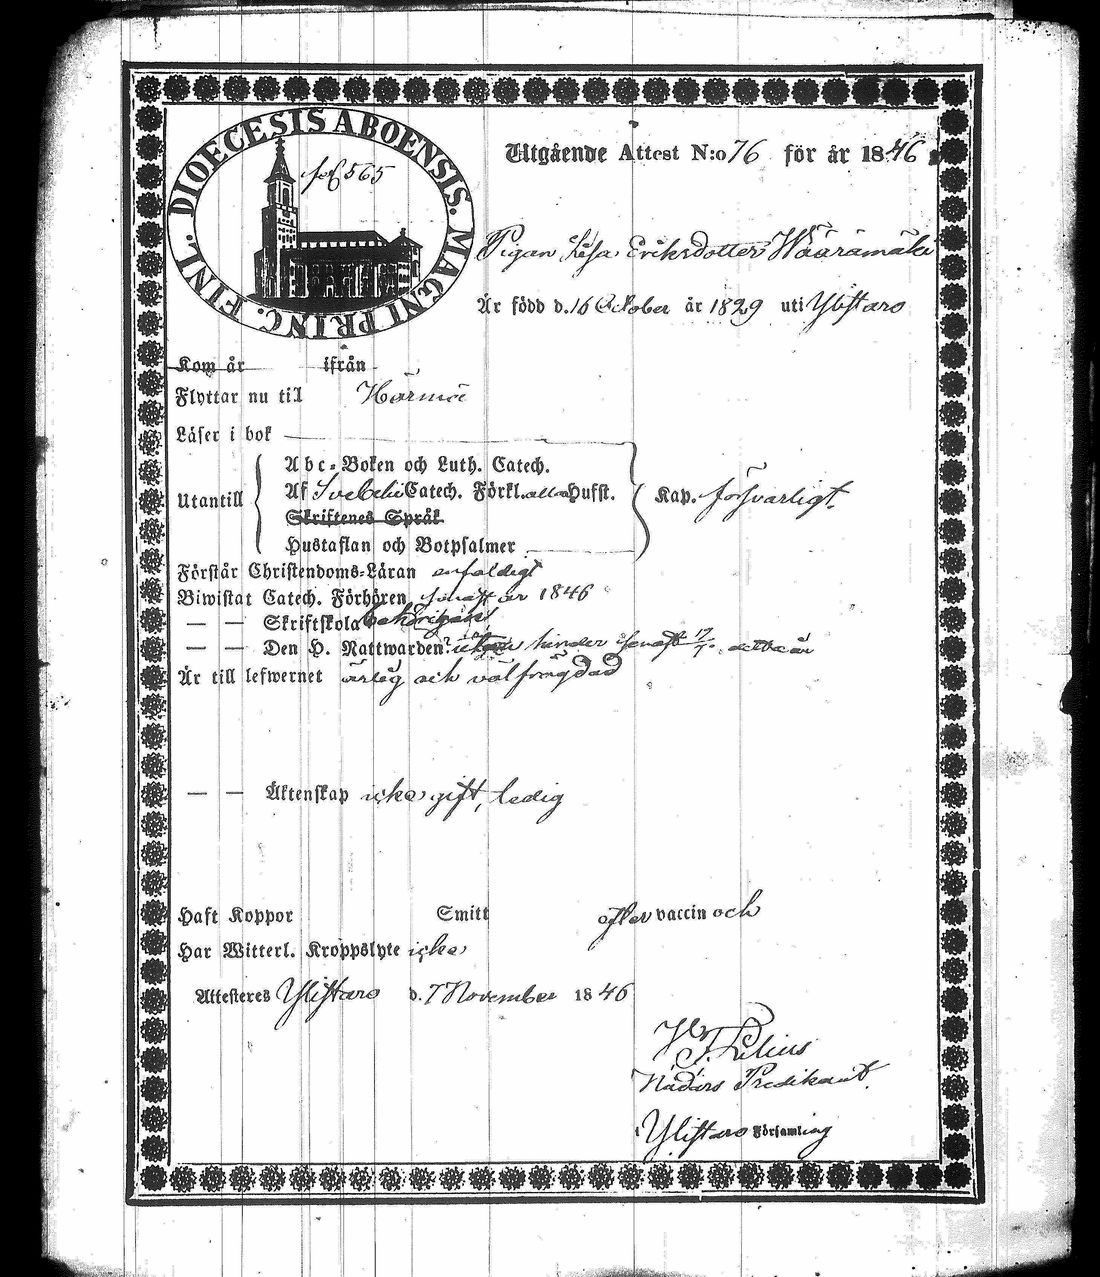 DIOECESIS ABOENSIS. MAGNI PRINC. FINL.
fol 565
Utgående Attest N:o 76 för år 1846.
Pigan Lisa Eriksdotter Waaramäki
Är född d. 16 October år 1829 uti Ylistaro
Kom år ifrån
Flyttar nu till Härmä
Läser i bok
Abc-Boken och Luth. Catech.
Utantill Af Svebelii Catech. Förkl. alla Hufst. Kap. försvarligt.
Skriftenes Språk
Hustaflan och Botpsalmer
Förstår Christendoms-Läran enfaldigt
Biwistat Catech. Förhören senast år 1846
— — Skriftskola behörigen
— — Den H. Nattwarden utan hinder senast 12/7. detta år
Är till lefwernet ärlig och välfrägdad
— — Äktenskap icke gift, ledig
Haft Koppor Smitt efter vaccin och
Har Witterl. Kroppslyte icke
Attesteres Ylistaro d. 7 November 1846
Nådårs Predikant.
i Ylistaro Församling